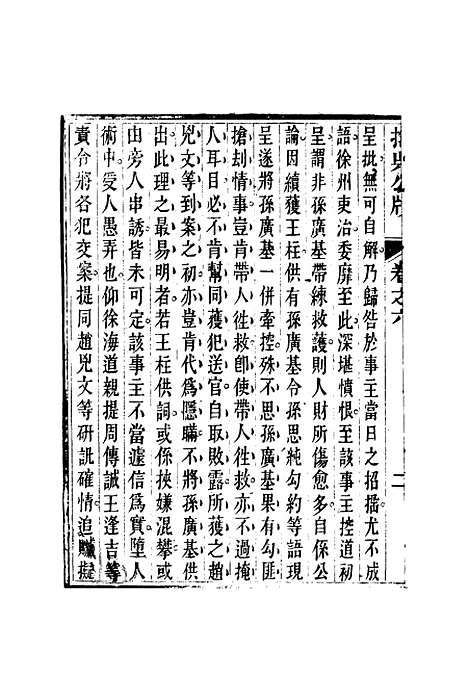 撫吳公牘 卷之六 二
呈批無可自解乃歸咎於事主當日之招搖尤不成
語徐州吏治委靡至此深堪憤恨至該事主控道初
呈謂非孫廣基帶練救護則人財所傷愈多自係公
論因續獲王柱供有孫廣基令孫思純勾約等語現
呈遂將孫廣基一併牽控殊不思孫廣基果有勾匪
搶刦情事豈肯帶人徃救卽使帶人徃救亦不過掩
人耳目必不肯幫同獲犯送官自取敗露所獲之趙
兇文等到案之初亦豈肯代爲隱瞞不將孫廣基供
出此理之最易明者若王柱供詞或係挾嫌混攀或
由旁人串誘皆未可定該事主不當遽信爲實墮人
術中受人愚弄也仰徐海道親提周傳誠王逢吉等
責令將各犯交案提同趙兇文等研訊確情追贓擬